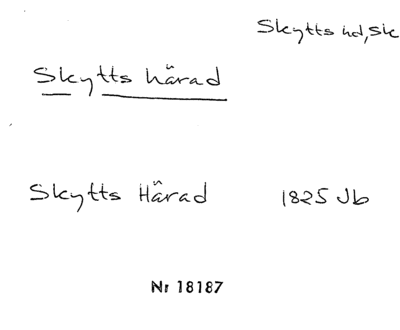 Skytts hd, Sk
Skytts härad
Skytts Härad 1825 Jb
Nr 18187